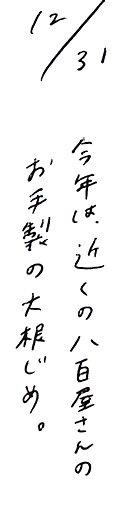 12/31
今年は、近くの八百屋さんの
お手製の大根じめ。